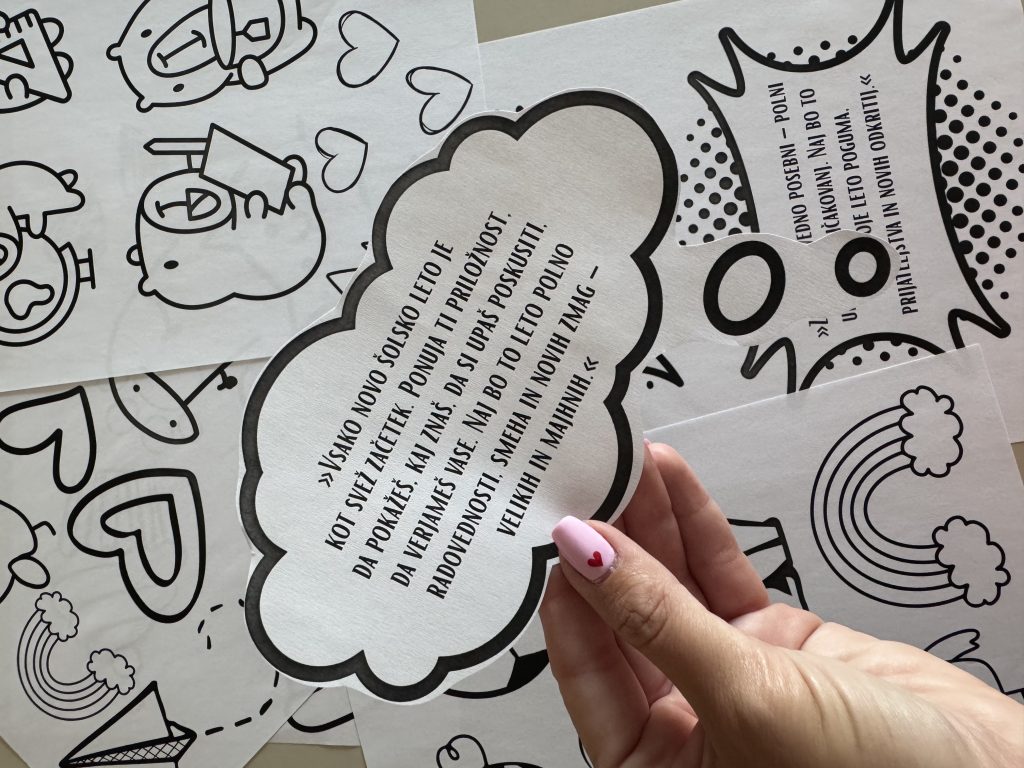 »Vsako novo šolsko leto je
kot svež začetek. Ponuja ti priložnost,
da pokažeš, kaj znaš, da si upaš poskusiti,
da verjameš vase. Naj bo to leto polno
radovednosti, smeha in novih zmag –
velikih in majhnih.«
posebni – polni
Naj bo to
leto poguma,
prijateljstva in novih odkritij.«